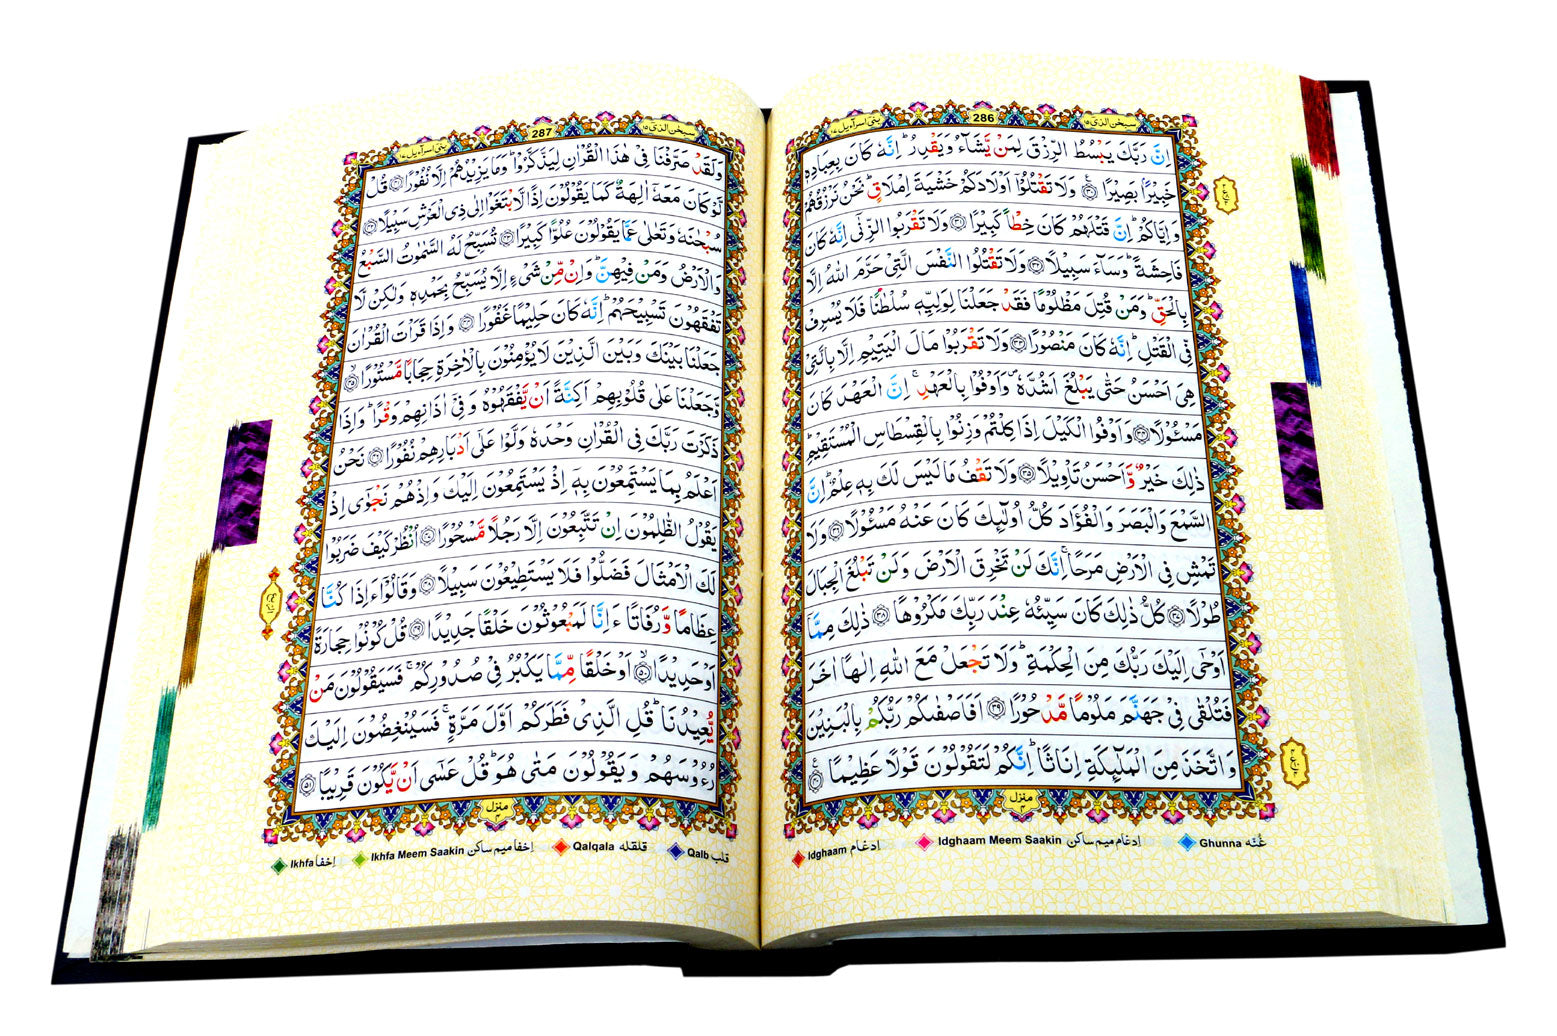 سبحن الذی ١٥
286
بنی اسرآءیل ١٧
اِنَّ رَبَّكَ يَبْسُطُ الرِّزْقَ لِمَنْ يَّشَآءُ وَيَقْدِرُ ؕ اِنَّهٗ كَانَ بِعِبَادِهٖ
خَبِيْرًۢا بَصِيْرًا ۟ وَلَا تَقْتُلُوْۤا اَوْلَادَكُمْ خَشْيَةَ اِمْلَاقٍ ؕ نَحْنُ نَرْزُقُهُمْ
وَاِيَّاكُمْ ؕ اِنَّ قَتْلَهُمْ كَانَ خِطْاً كَبِيْرًا ۟ وَلَا تَقْرَبُوا الزِّنٰۤى اِنَّهٗ كَانَ
فَاحِشَةً ؕ وَسَآءَ سَبِيْلًا ۟ وَلَا تَقْتُلُوا النَّفْسَ الَّتِيْ حَرَّمَ اللّٰهُ اِلَّا
بِالْحَقِّ ؕ وَمَنْ قُتِلَ مَظْلُوْمًا فَقَدْ جَعَلْنَا لِوَلِيِّهٖ سُلْطٰنًا فَلَا يُسْرِفْ
فِّي الْقَتْلِ ؕ اِنَّهٗ كَانَ مَنْصُوْرًا ۟ وَلَا تَقْرَبُوْا مَالَ الْيَتِيْمِ اِلَّا بِالَّتِيْ
هِيَ اَحْسَنُ حَتّٰى يَبْلُغَ اَشُدَّهٗ ۪ وَاَوْفُوْا بِالْعَهْدِ ۚ اِنَّ الْعَهْدَ كَانَ
مَسْـُٔوْلًا ۟ وَاَوْفُوا الْكَيْلَ اِذَا كِلْتُمْ وَزِنُوْا بِالْقِسْطَاسِ الْمُسْتَقِيْمِ ؕ
ذٰلِكَ خَيْرٌ وَّاَحْسَنُ تَاْوِيْلًا ۟ وَلَا تَقْفُ مَا لَيْسَ لَكَ بِهٖ عِلْمٌ ؕ اِنَّ
السَّمْعَ وَالْبَصَرَ وَالْفُؤَادَ كُلُّ اُولٰٓئِكَ كَانَ عَنْهُ مَسْـُٔوْلًا ۟ وَلَا
تَمْشِ فِي الْاَرْضِ مَرَحًا ۚ اِنَّكَ لَنْ تَخْرِقَ الْاَرْضَ وَلَنْ تَبْلُغَ الْجِبَالَ
طُوْلًا ۟ كُلُّ ذٰلِكَ كَانَ سَيِّئُهٗ عِنْدَ رَبِّكَ مَكْرُوْهًا ۟ ذٰلِكَ مِمَّاۤ
اَوْحٰۤى اِلَيْكَ رَبُّكَ مِنَ الْحِكْمَةِ ؕ وَلَا تَجْعَلْ مَعَ اللّٰهِ اِلٰهًا اٰخَرَ
فَتُلْقٰى فِيْ جَهَنَّمَ مَلُوْمًا مَّدْحُوْرًا ۟ اَفَاَصْفٰىكُمْ رَبُّكُمْ بِالْبَنِيْنَ
وَاتَّخَذَ مِنَ الْمَلٰٓئِكَةِ اِنَاثًا ؕ اِنَّكُمْ لَتَقُوْلُوْنَ قَوْلًا عَظِيْمًا ۟
منزل ٤
Idghaam ادغام Idghaam Meem Saakin ادغام میم ساکن Ghunna غُنّه
سبحن الذی ١٥
287
بنی اسرآءیل ١٧
وَلَقَدْ صَرَّفْنَا فِيْ هٰذَا الْقُرْاٰنِ لِيَذَّكَّرُوْا ؕ وَمَا يَزِيْدُهُمْ اِلَّا نُفُوْرًا ۟ قُلْ
لَّوْ كَانَ مَعَهٗۤ اٰلِهَةٌ كَمَا يَقُوْلُوْنَ اِذًا لَّابْتَغَوْا اِلٰى ذِي الْعَرْشِ سَبِيْلًا ۟
سُبْحٰنَهٗ وَتَعٰلٰى عَمَّا يَقُوْلُوْنَ عُلُوًّا كَبِيْرًا ۟ تُسَبِّحُ لَهُ السَّمٰوٰتُ السَّبْعُ
وَالْاَرْضُ وَمَنْ فِيْهِنَّ ؕ وَاِنْ مِّنْ شَيْءٍ اِلَّا يُسَبِّحُ بِحَمْدِهٖ وَلٰكِنْ لَّا
تَفْقَهُوْنَ تَسْبِيْحَهُمْ ؕ اِنَّهٗ كَانَ حَلِيْمًا غَفُوْرًا ۟ وَاِذَا قَرَاْتَ الْقُرْاٰنَ
جَعَلْنَا بَيْنَكَ وَبَيْنَ الَّذِيْنَ لَا يُؤْمِنُوْنَ بِالْاٰخِرَةِ حِجَابًا مَّسْتُوْرًا ۟
وَّجَعَلْنَا عَلٰى قُلُوْبِهِمْ اَكِنَّةً اَنْ يَّفْقَهُوْهُ وَفِيْۤ اٰذَانِهِمْ وَقْرًا ؕ وَاِذَا
ذَكَرْتَ رَبَّكَ فِي الْقُرْاٰنِ وَحْدَهٗ وَلَّوْا عَلٰۤى اَدْبَارِهِمْ نُفُوْرًا ۟ نَحْنُ
اَعْلَمُ بِمَا يَسْتَمِعُوْنَ بِهٖۤ اِذْ يَسْتَمِعُوْنَ اِلَيْكَ وَاِذْ هُمْ نَجْوٰۤى اِذْ
يَقُوْلُ الظّٰلِمُوْنَ اِنْ تَتَّبِعُوْنَ اِلَّا رَجُلًا مَّسْحُوْرًا ۟ اُنْظُرْ كَيْفَ ضَرَبُوْا
لَكَ الْاَمْثَالَ فَضَلُّوْا فَلَا يَسْتَطِيْعُوْنَ سَبِيْلًا ۟ وَقَالُوْۤا ءَاِذَا كُنَّا
عِظَامًا وَّرُفَاتًا ءَاِنَّا لَمَبْعُوْثُوْنَ خَلْقًا جَدِيْدًا ۟ قُلْ كُوْنُوْا حِجَارَةً
اَوْ حَدِيْدًا ۟ اَوْ خَلْقًا مِّمَّا يَكْبُرُ فِيْ صُدُوْرِكُمْ ۚ فَسَيَقُوْلُوْنَ مَنْ
يُّعِيْدُنَا ؕ قُلِ الَّذِيْ فَطَرَكُمْ اَوَّلَ مَرَّةٍ ۚ فَسَيُنْغِضُوْنَ اِلَيْكَ
رُءُوْسَهُمْ وَيَقُوْلُوْنَ مَتٰى هُوَ ؕ قُلْ عَسٰۤى اَنْ يَّكُوْنَ قَرِيْبًا ۟
منزل ٤
Ikhfa اِخفا Ikhfa Meem Saakin اِخفا میم ساکن Qalqala قلقله Qalb قلب